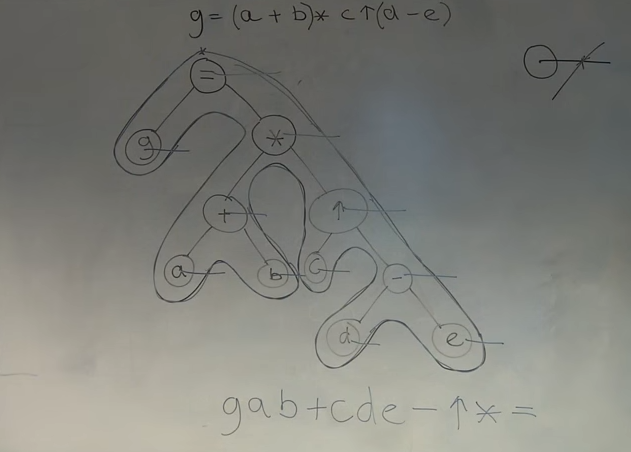 g = (a + b) * c ↑ (d - e)
=
g
*
+
↑
a
b
c
-
d
e
gab+cde-↑*=